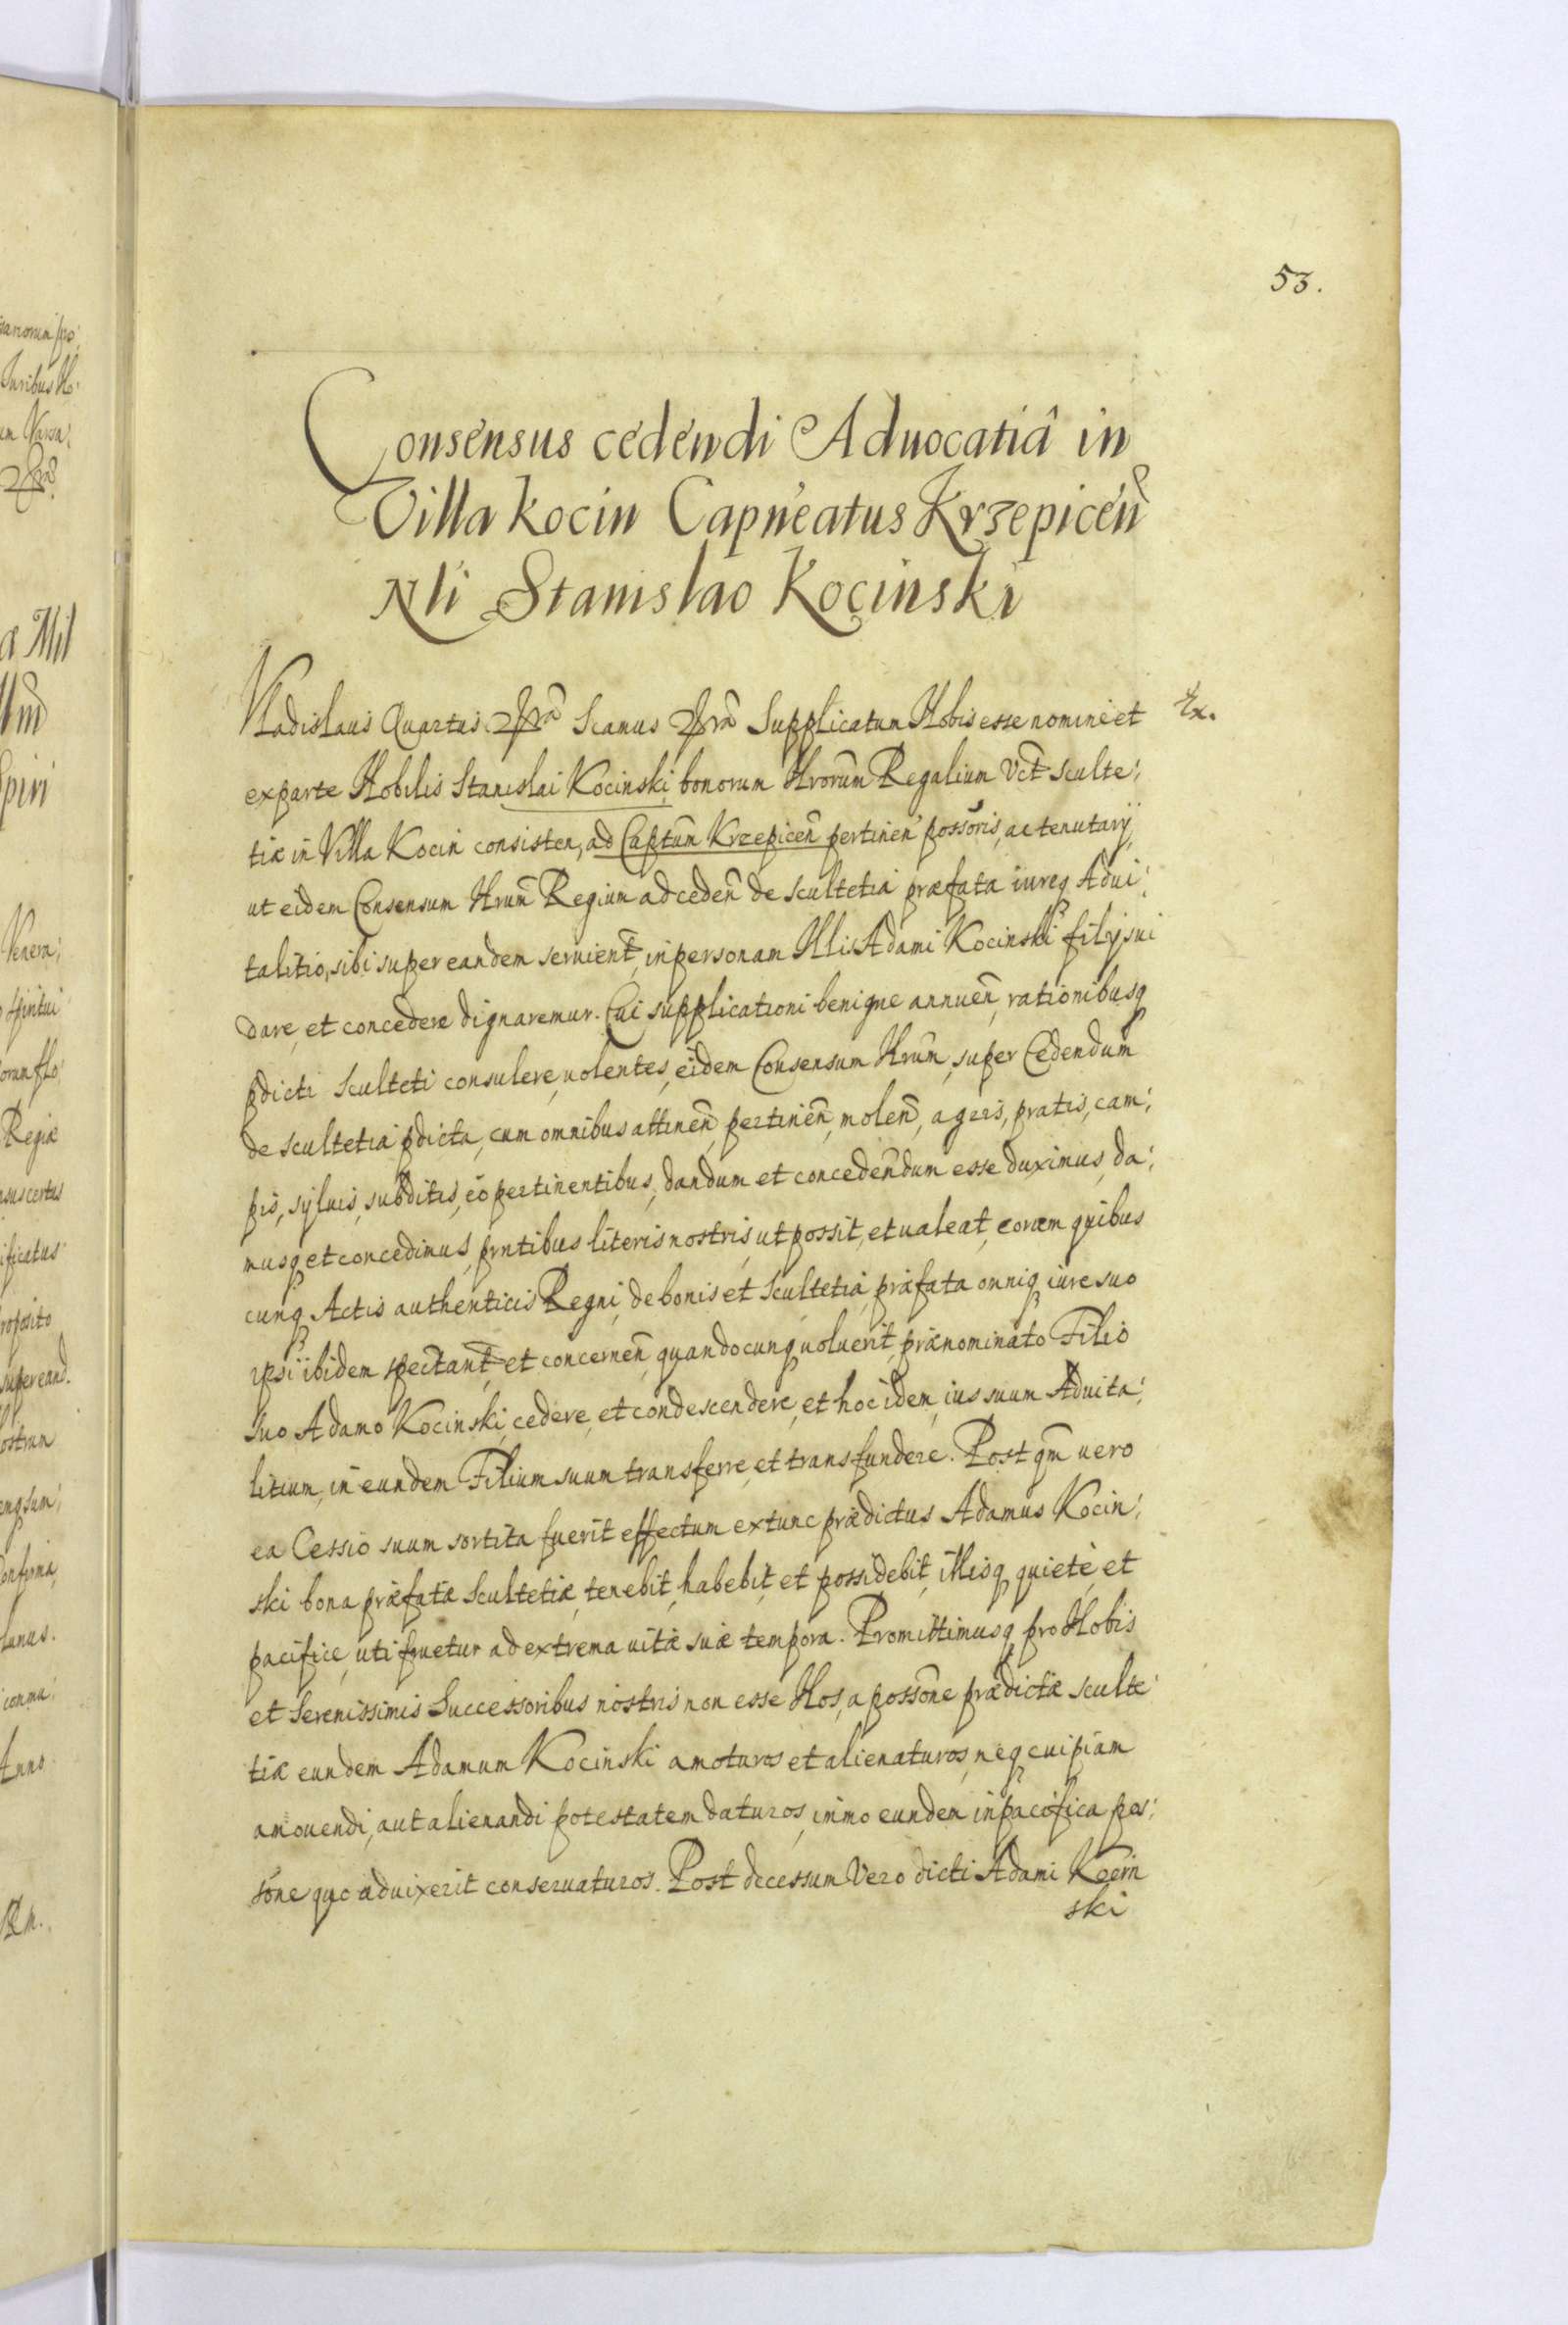 53.
Consensus cedendi Aduocatiâ in
Villa Kocin Capneatus Krzepiceñ
Nli Stanislao Kocinski
Vladislaus Quartus. Scamus Supplicatum Nobis esse nomine et
Ex.
ex parte Nobilis Stanislai Kocinski, bonorum Nrorum Regalium Vct Sculte:
tiæ in Villa Kocin consisten, ad Captum Krzepiceñ pertinen possoris, ac tenutarÿ,
ut eidem Consensum Nrum Regium ad cedeñ de Scultetia præfata iureq Adui:
talitio, sibi super eandem seruient, in personam Nlis Adami Kocinski filÿ sui
dare, et concedere dignaremur. Cui supplicationi benigne annueñ, rationibusq
pdicti Sculteti consulere, uolentes, eidem Consensum Nrum, super Cedendum
de Scultetia pdicta, cum omnibus attineñ, pertinieñ, moleñ, agris, pratis, cam:
pis, syluis, subditis, eo pertinentibus, dandum et concedendum esse duximus, da:
musq et concedimus, pntibus literis nostris, ut possit, et ualeat, coram quibus
cunq Actis authenticis Regni, de bonis et Scultetia, præfata omniq iure suo
ipsi ibidem spectant, et concerneñ, quandocunq uoluerit, prænominato Filio
suo Adamo Kocinski, cedere, et condescendere, et hoc idem, ius suum Aduita:
litium, in eundem Filium suum transferre, et transfundere. Post qm uero
ea Cessio suum sortita fuerit effectum extunc prædictus Adamus Kocin:
ski bona præfatæ Scultetiæ, tenebit, habebit, et possidebit, illisq quiete, et
pacifice, uti fruetur ad extrema uitæ suæ tempora. Promittimusq pro Nobis
et Serenissimis Successoribus nostris non esse Nos, a possone prædictæ sculte
tiæ eundem Adamum Kocinski amoturos et alienaturos, neq cuipiam
amouendi, aut alienandi potestatem daturos, immo eundem in pacifica pos:
sone quo aduixerit conseruaturos. Post decessum Vero dicti Adami Kocin
ski